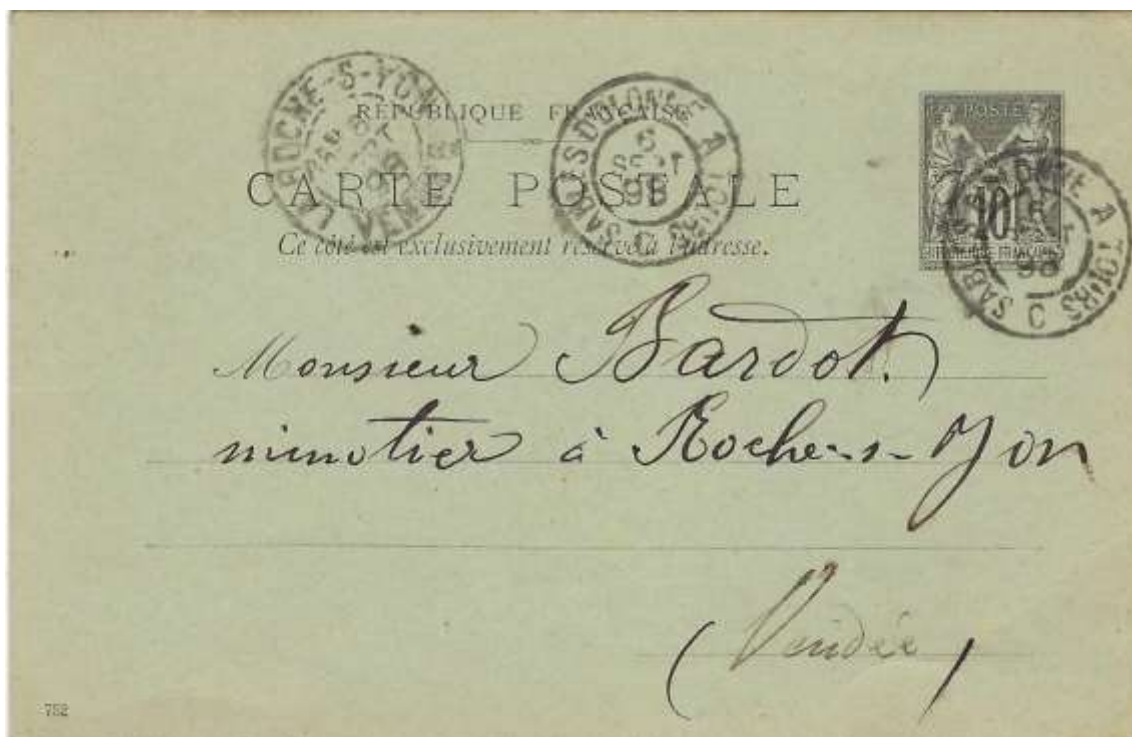 RÉPUBLIQUE FRANÇAISE
CARTE POSTALE
Ce côté est exclusivement réservé à l'adresse.
LA ROCHE-S-YON
VENDÉE
SABLES D'OLONNE A TOURS
6
SEPT
98
C
POSTE
10
SABLES D'OLONNE A TOURS
98
C
Monsieur Bardot.
minotier à Roche-s-Yon
(Vendée)
752